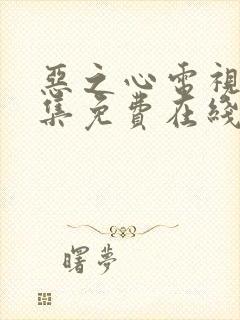 惡之心電視
集免費在綫
曙夢